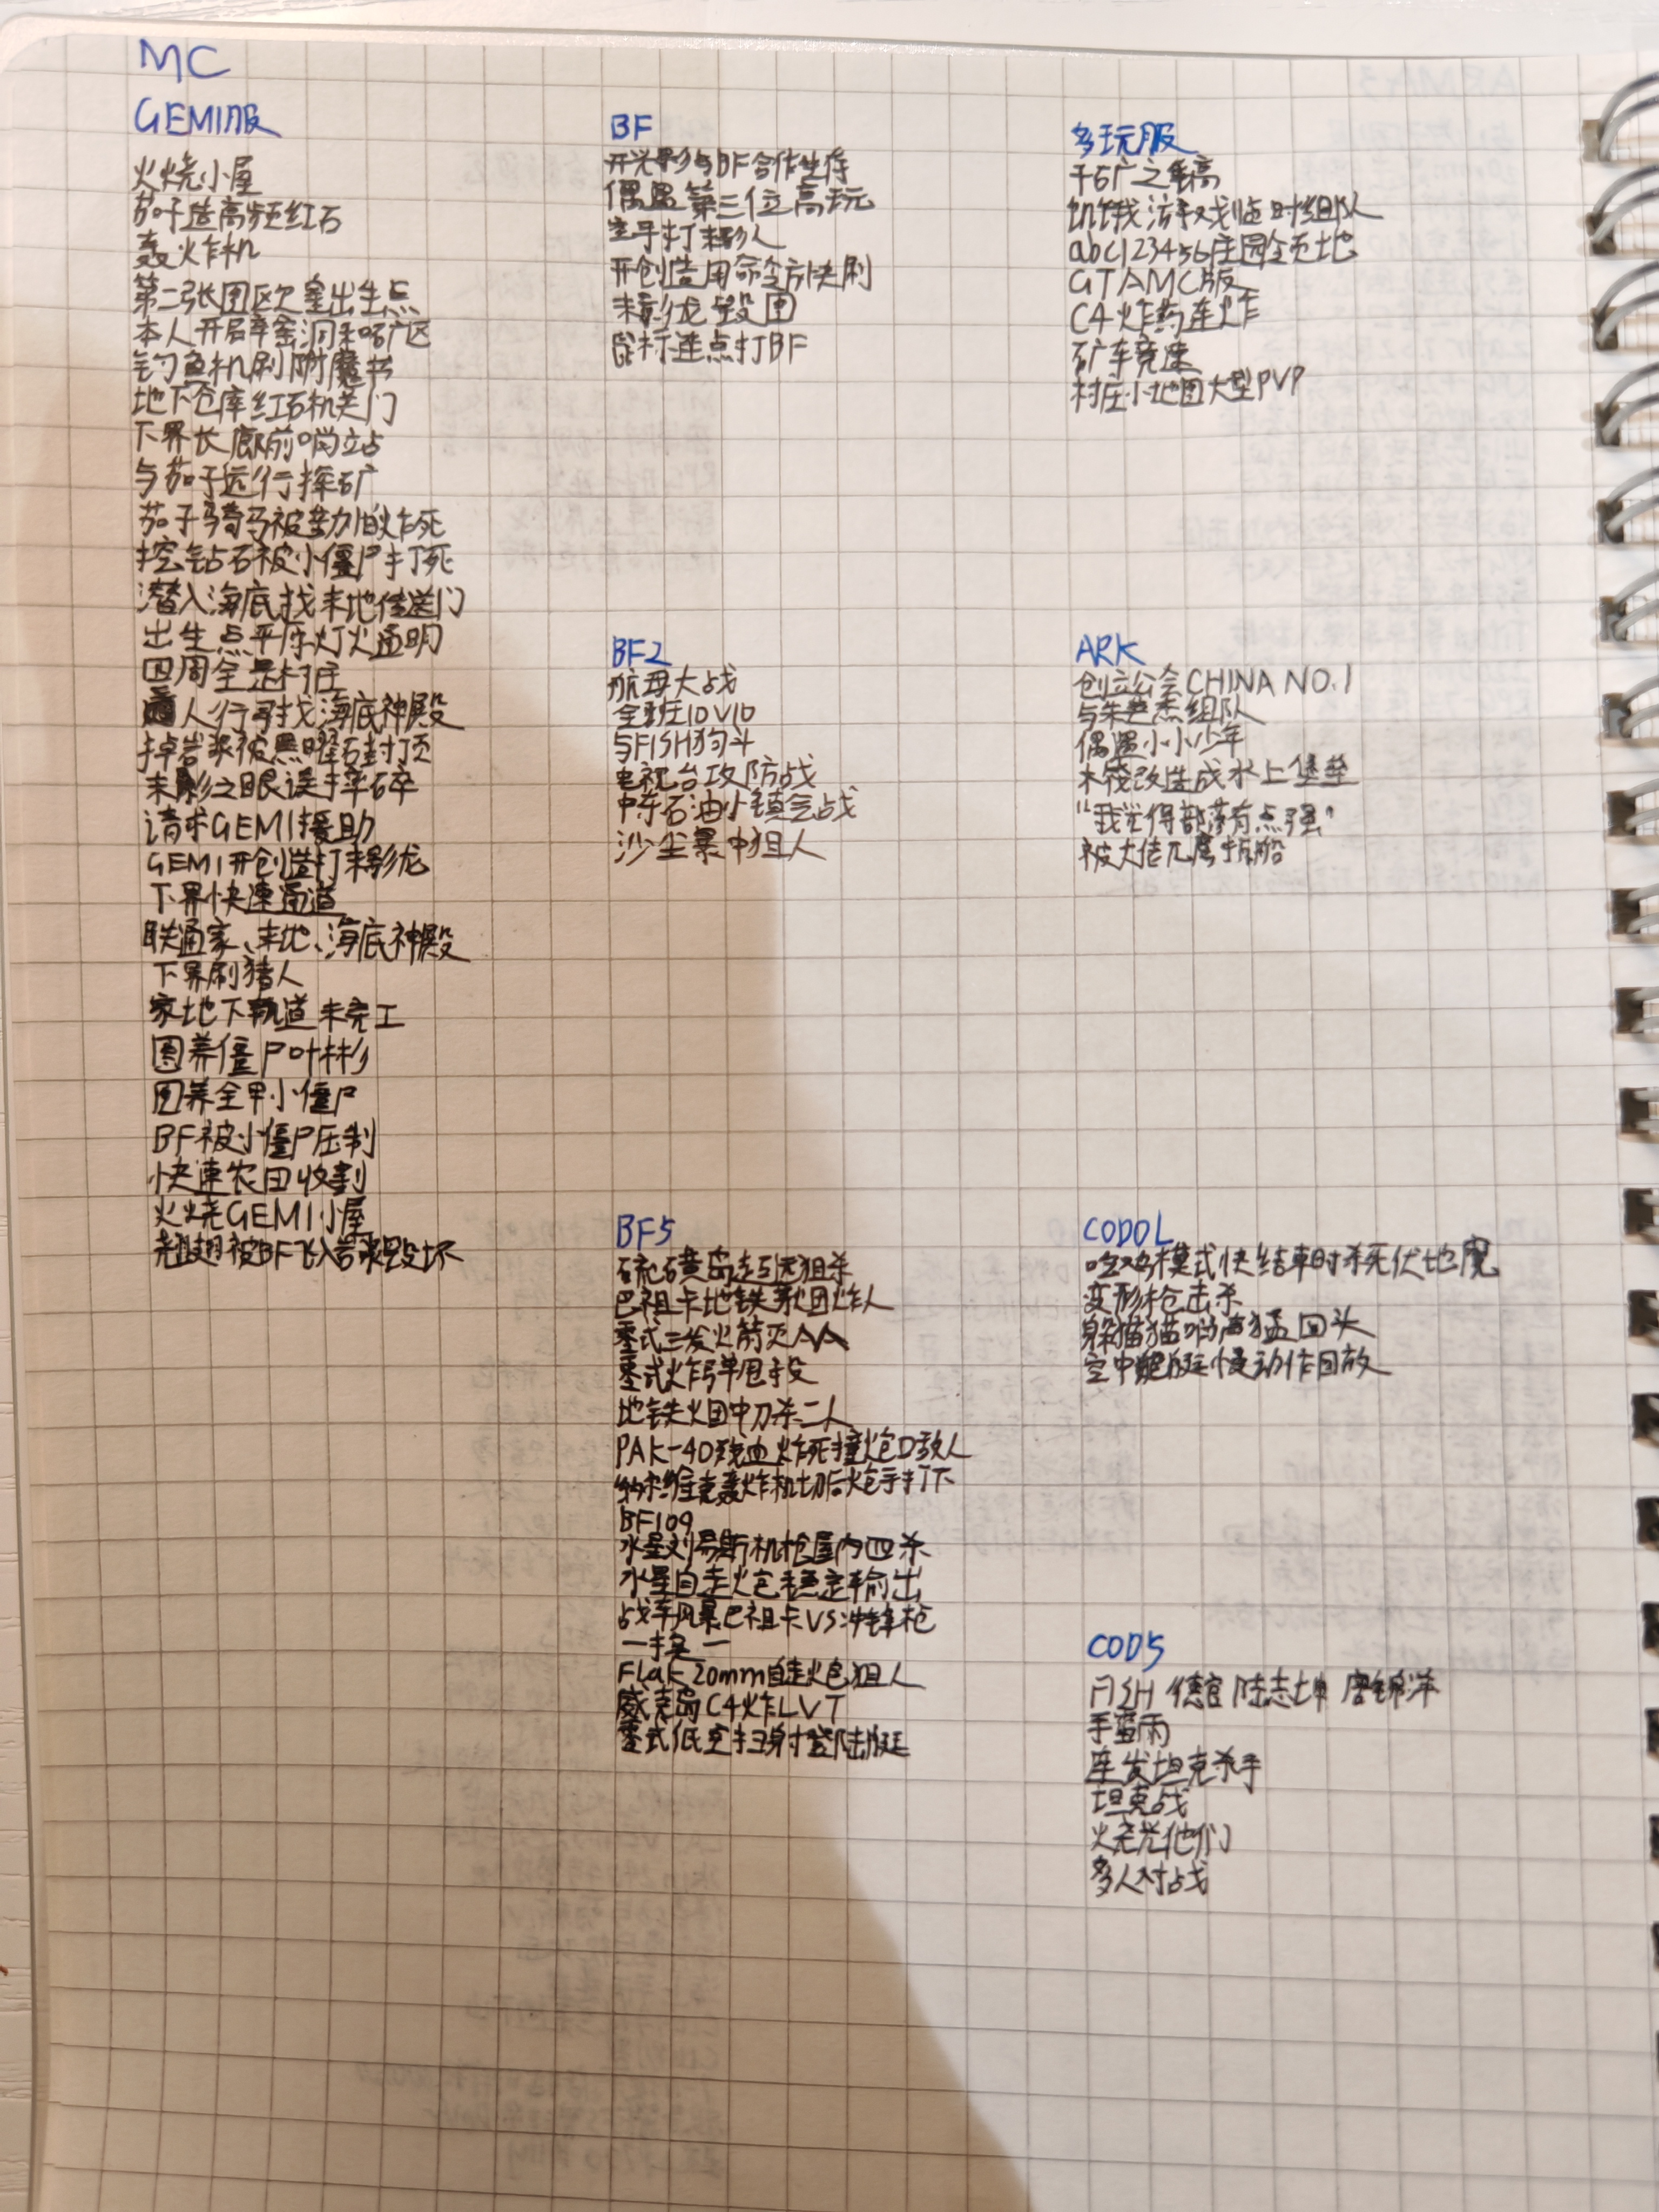 MC
GEMI服
火烧小屋
茄子造高频红石
轰炸机
第二张图欧皇出生点
本人开启率金洞和矿区
钓鱼机刷附魔书
地下仓库红石机关门
下界长廊前哨站
与茄子远行挥矿
茄子骑马被苦力怕炸死
挖钻石被小僵尸打死
潜入海底找末地传送门
出生点平原灯火通明
四周全是村庄
人行寻找海底神殿
掉岩浆被黑曜石封顶
末影之眼误摔碎
请求GEMI援助
GEMI开创造打末影龙
下界快速通道
联通家、末地、海底神殿
下界刷猪人
家地下轨道未完工
圈养僵尸叶林彬
圈养全甲小僵尸
BF被小僵尸压制
快速农田收割
火烧GEMI小屋
翘翅被BF飞入岩浆毁坏
BF
开光影与BF合作生存
偶遇第三位高玩
空手打末影人
开创造用命令方块刷
末影龙毁图
鼠标连点打BF
多玩服
千矿之高
饥饿游戏临时组队
abc123456庄园全页地
GTAMC版
C4炸药连炸
矿车竞速
村庄小地图大型PVP
BF2
航母大战
全班10V10
与FISH狗斗
电视台攻防战
中东石油小镇会战
沙尘暴中狙人
ARK
创立公会CHINA NO.1
与朱组队
偶遇小小少年
木筏改造成水上堡垒
"我觉得部落有点强"
被大佬拆船
BF5
硫磺岛超远狙杀
巴祖卡地铁救团炸人
零式三发火箭灭AA
零式炸弹甩投
地铁火团中刀杀二人
PAK-40残血炸死撞炮口敌人
纳尔维克轰炸机切后炮手打下
BF109
水星刘易斯机枪屋内四杀
水星自走火炮稳定输出
战车风暴巴祖卡VS冲锋枪
一换一
Flak 20mm自走炮狙人
威克岛C4炸LVT
零式低空扫射登陆艇
CODOL
吃鸡模式快结束时杀死伏地魔
变形枪击杀
躲猫猫哨声猛回头
空中慢动作回放
COD5
FISH 德官 陆志坤 唐锦洋
手蓝雨
连发坦克杀手
坦克战
火烧光他们
多人对战